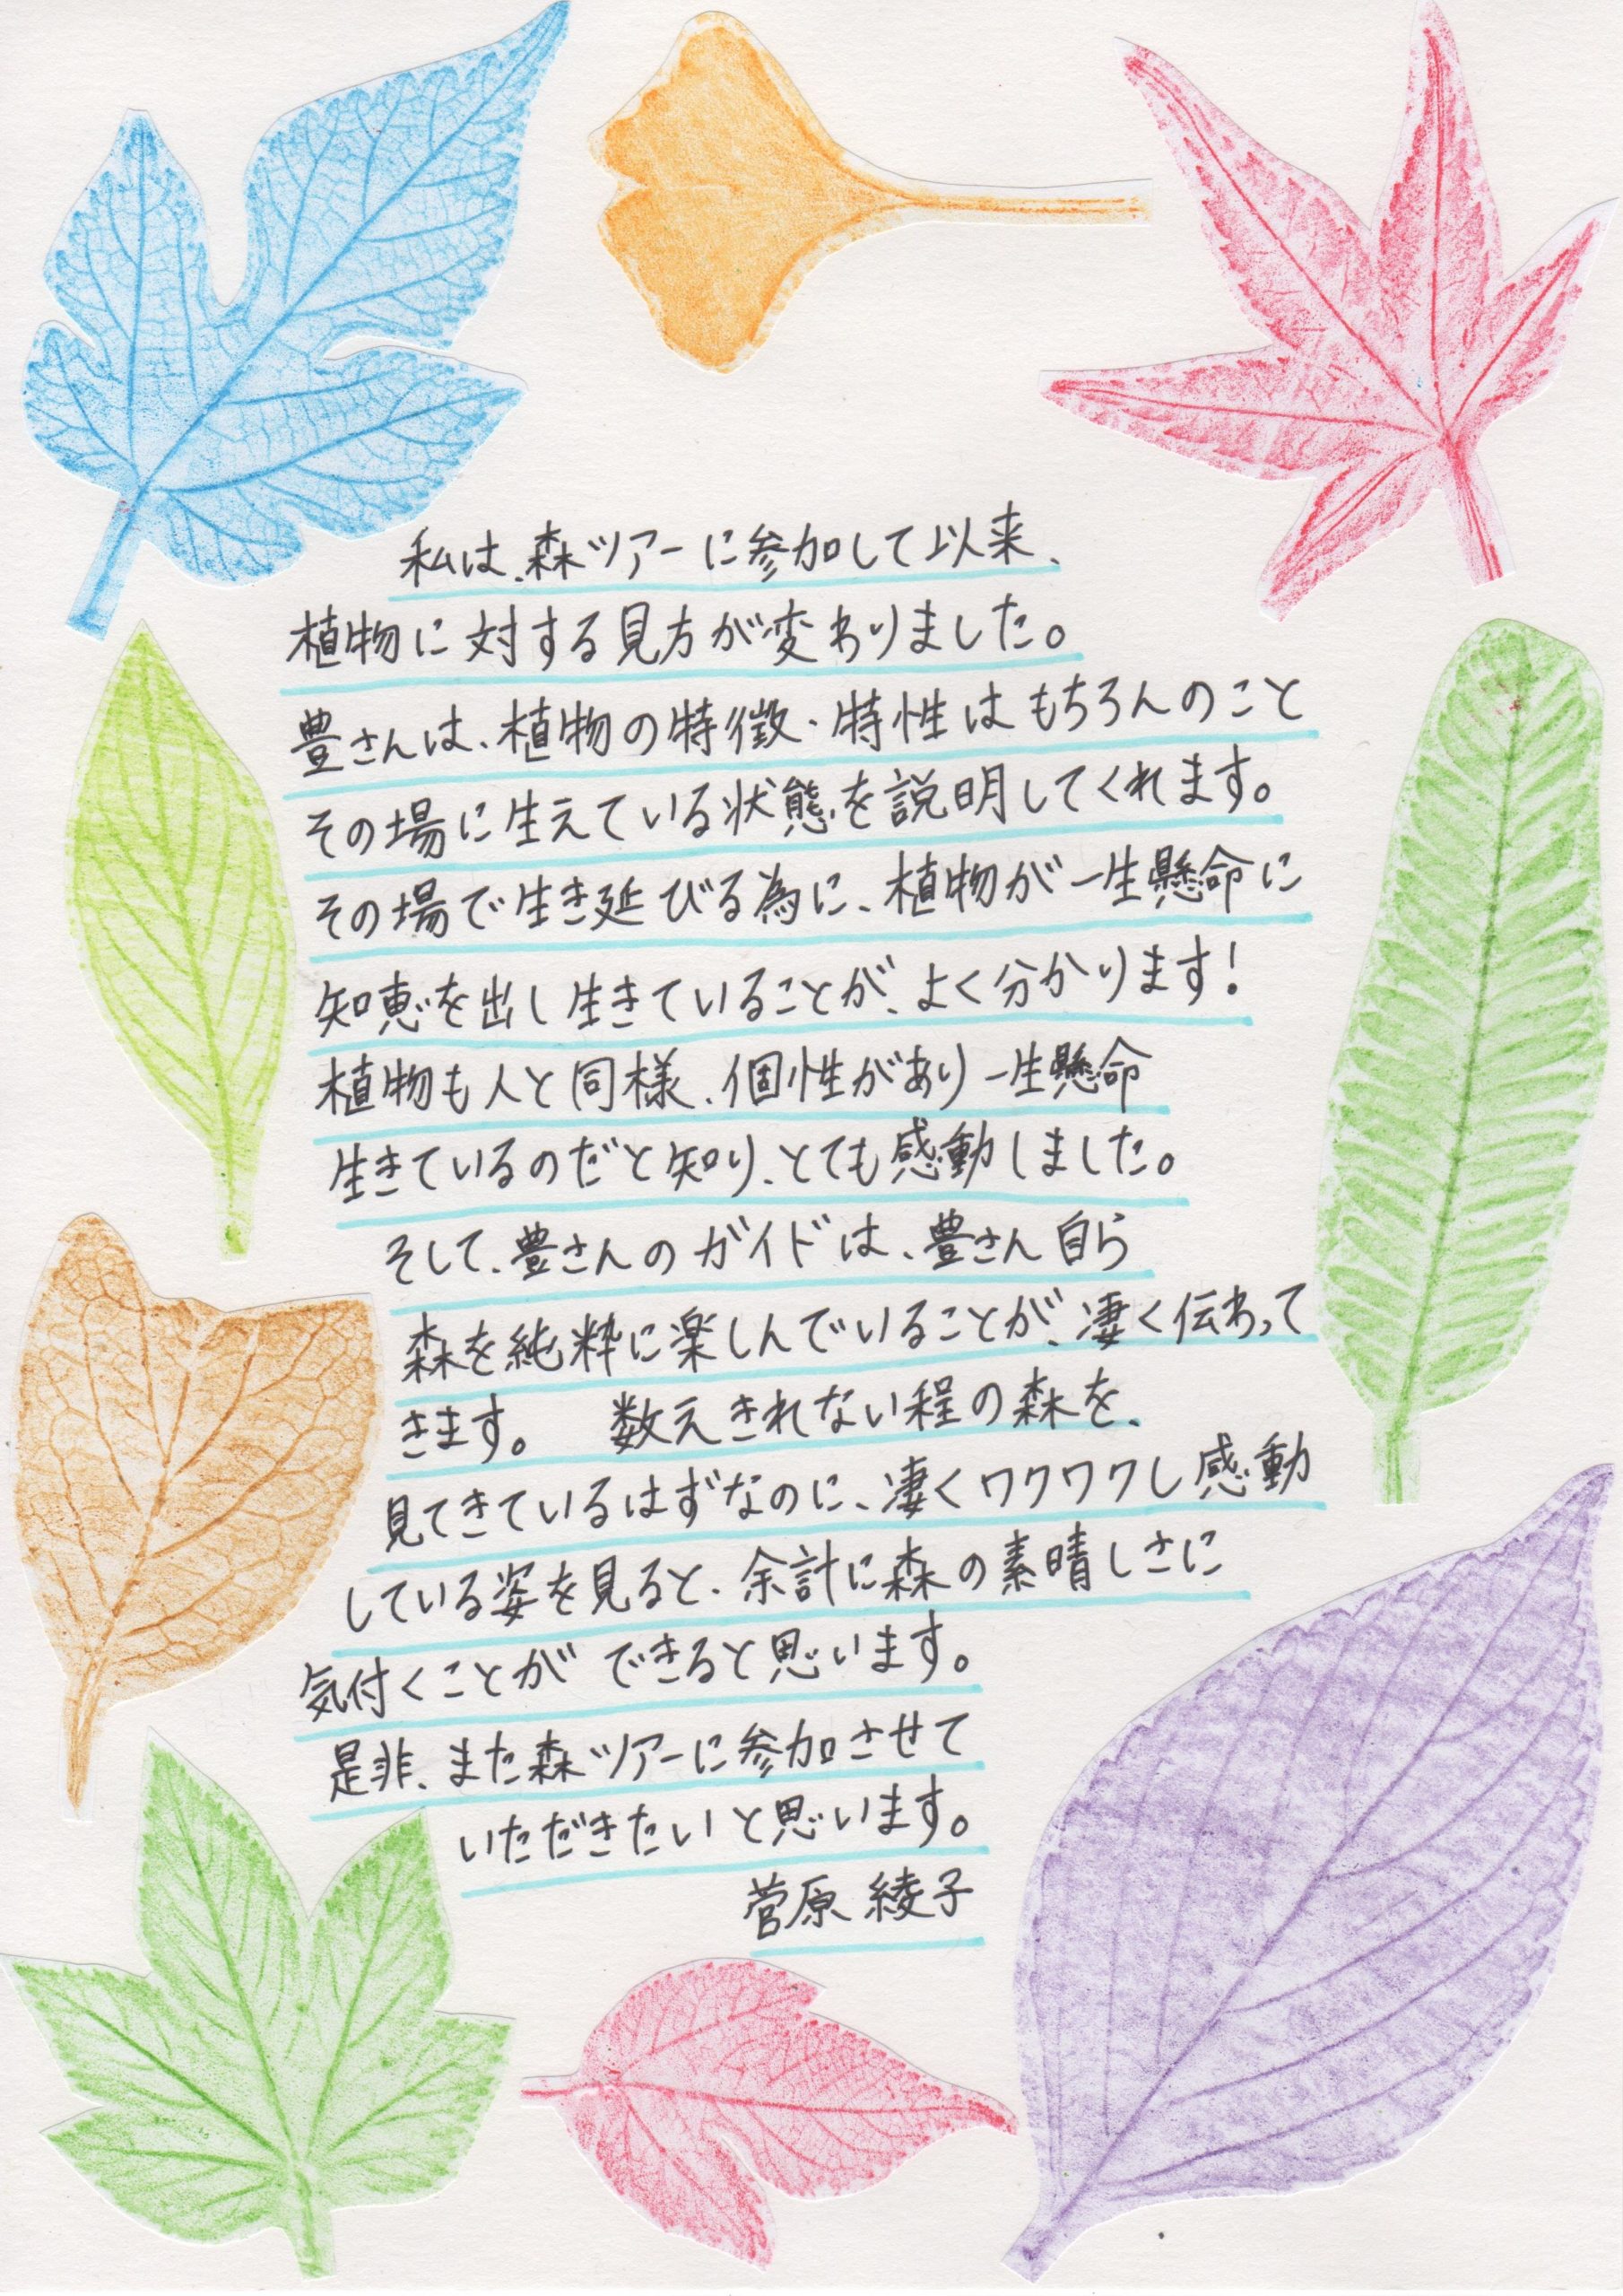 私は、森ツアーに参加して以来、
植物に対する見方が変わりました。
豊さんは、植物の特徴・特性はもちろんのこと
その場に生えている状態を説明してくれます。
その場で生き延びる為に、植物が一生懸命に
知恵を出し生きていることが、よく分かります!
植物も人と同様、個性があり一生懸命
生きているのだと知り、とても感動しました。
そして、豊さんのガイドは、豊さん自ら
森を純粋に楽しんでいることが、凄く伝わって
きます。 数えきれない程の森を、
見てきているはずなのに、凄くワクワクし感動
している姿を見ると、余計に森の素晴しさに
気付くことができると思います。
是非、また森ツアーに参加させて
いただきたいと思います。
菅原 綾子